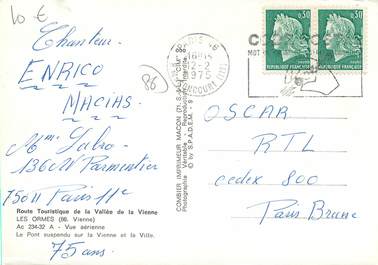 10 €
Chanteur
ENRICO
MACIAS
86
Mme
136 AV Parmentier
75011 Paris 11e
Route Touristique de la Vallée de la Vienne
LES ORMES (86. Vienne)
Ac 234-32 A - Vue aérienne
Le Pont suspendu sur la Vienne et la Ville.
75 ans.
COMBIER IMPRIMEUR MACON (71, S.-&-L.) "CIM"
Photographie Véritable - Reproduction Interdite
© by S.P.A.D.E.M. - 9
PARIS
12-2
1975
0,50
REPUBLIQUE FRANÇAISE
0,50
REPUBLIQUE FRANÇAISE
OSCAR
RTL
cedex 800
Paris Brune